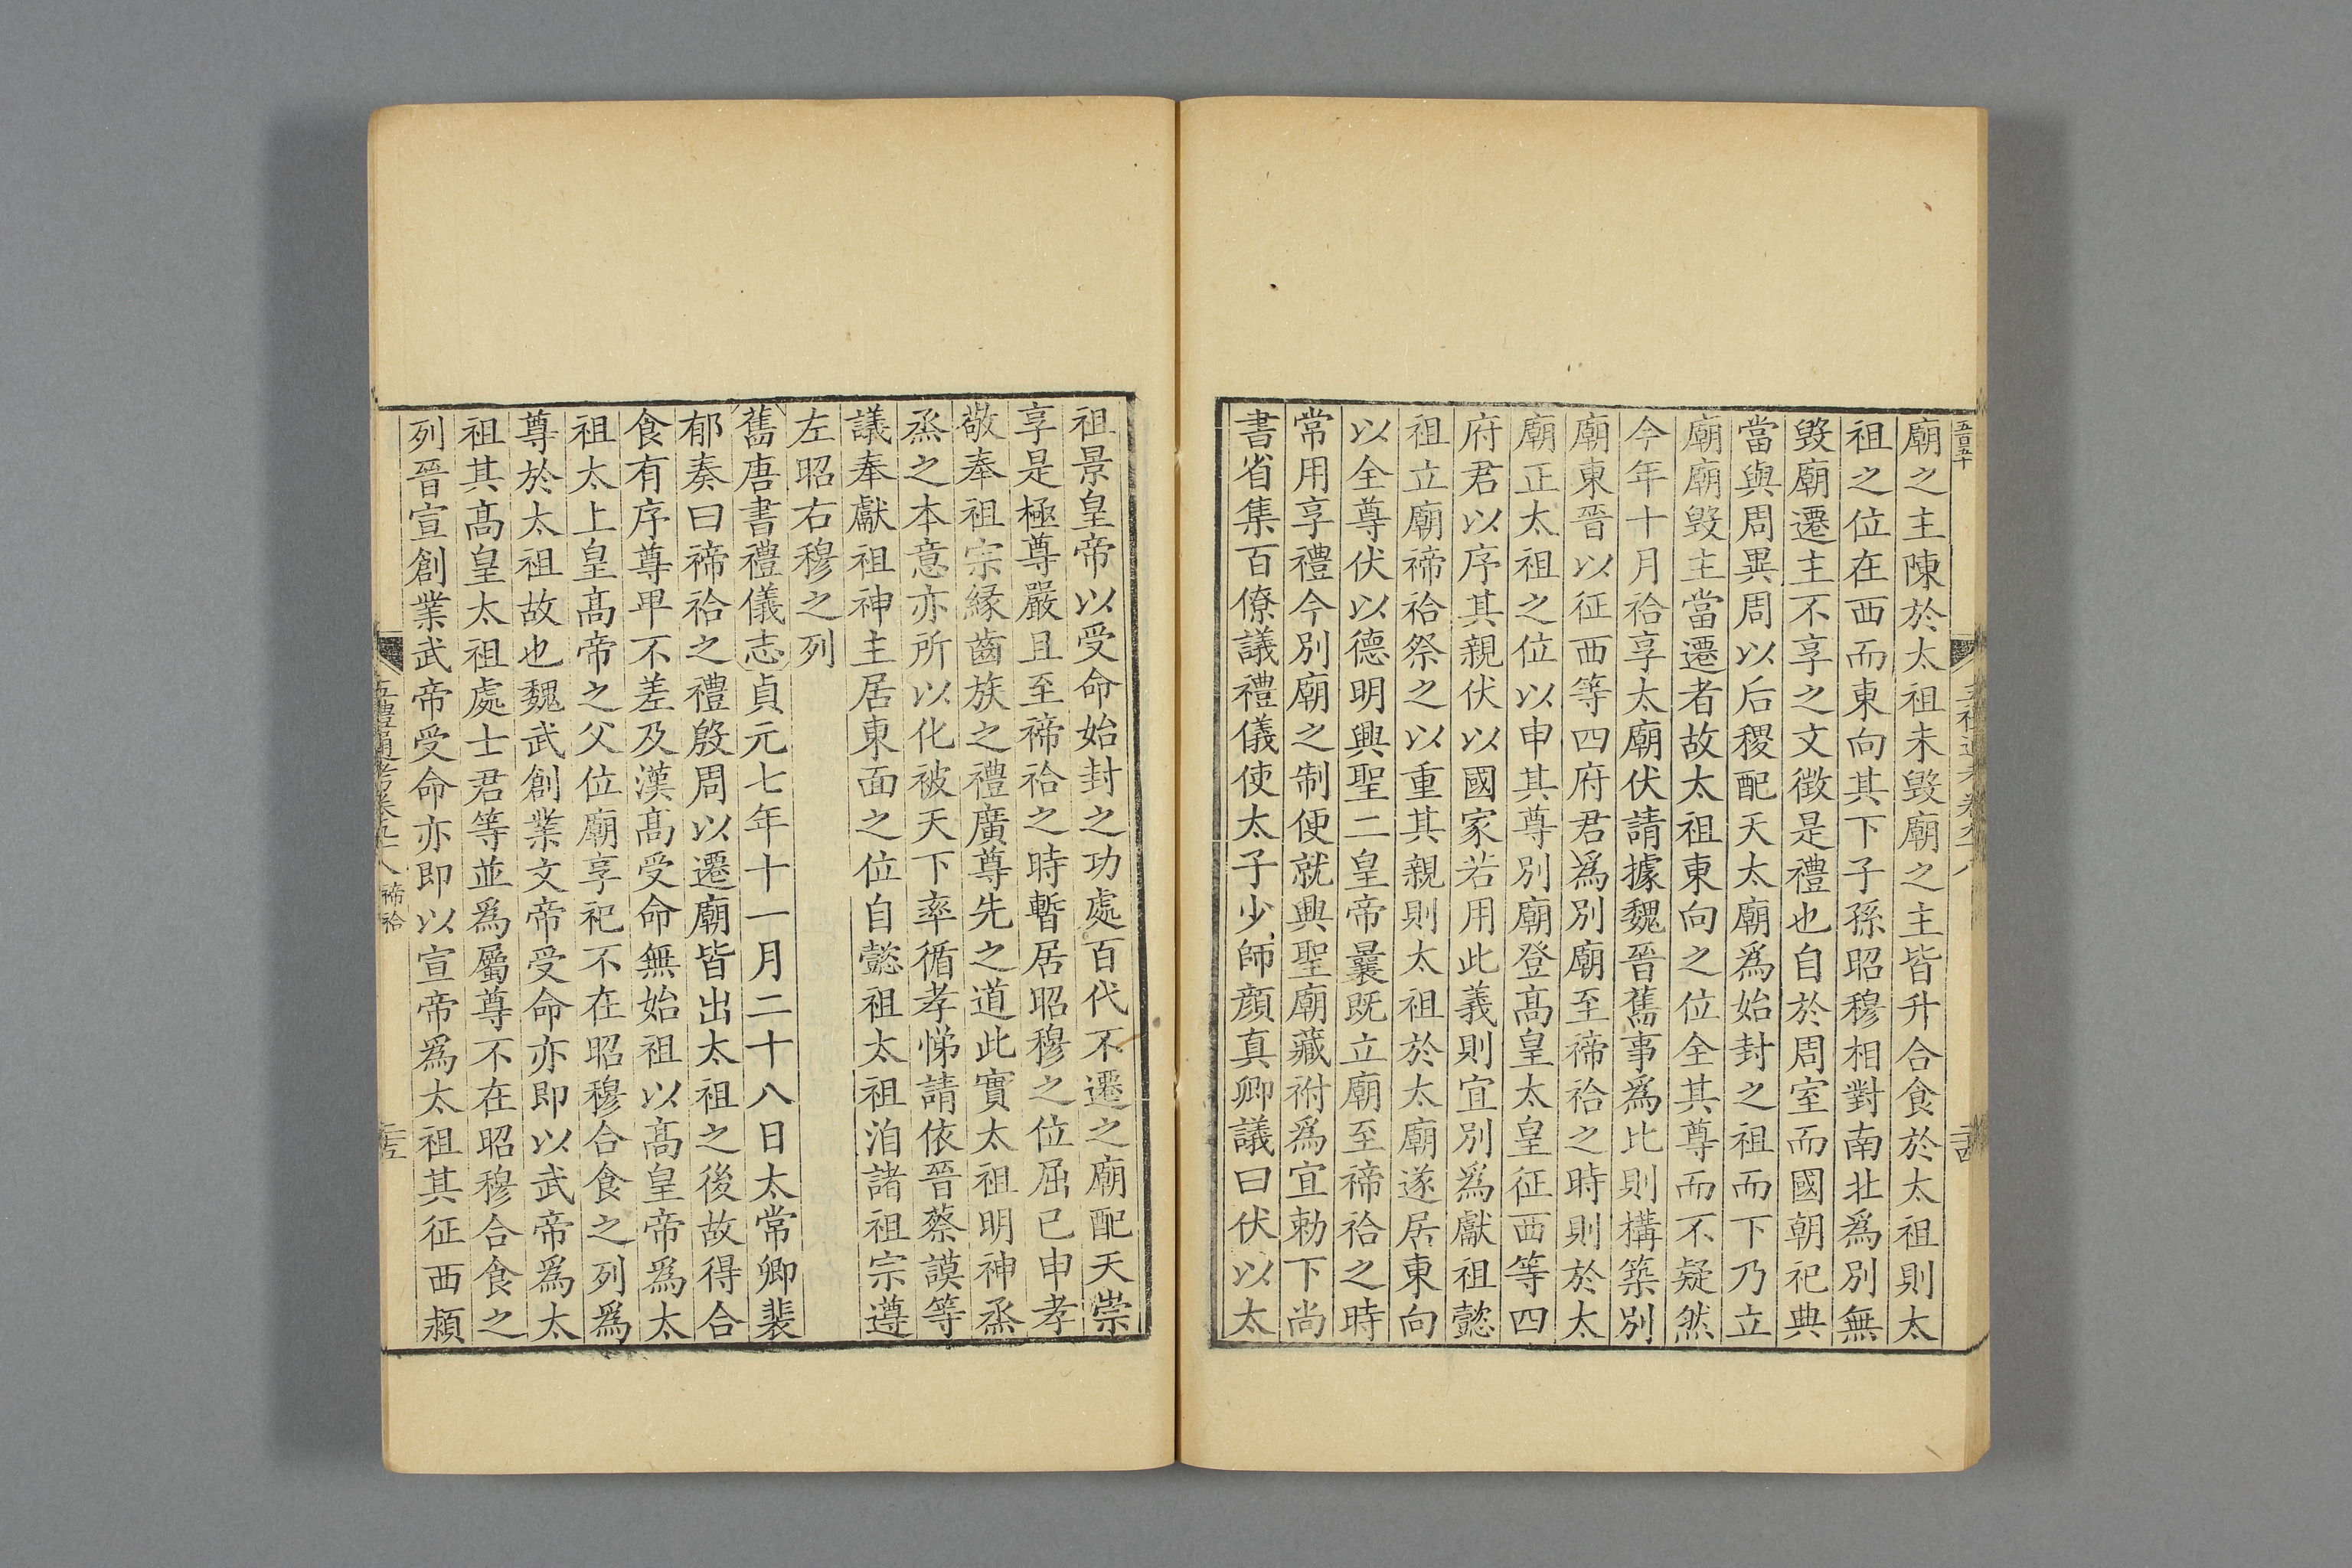 五百五十
廟之主陳於太祖未毀廟之主皆升合食於太祖則太
祖之位在西而東向其下子孫昭穆相對南北爲別無
毀廟遷主不享之文徵是禮也自於周室而國朝祀典
當與周異周以后稷配天太廟爲始封之祖而下乃立
廟廟毀主當遷者故太祖東向之位全其尊而不疑然
今年十月祫享太廟伏請據魏晉舊事爲比則構築別
廟東晉以征西等四府君爲別廟至禘祫之時則於太
廟正太祖之位以申其尊別廟登高皇太皇征西等四
府君以序其親伏以國家若用此義則宜別爲獻祖懿
祖立廟禘祫祭之以重其親則太祖於太廟遂居東向
以全尊伏以德明興聖二皇帝曩既立廟至禘祫之時
常用享禮今別廟之制便就興聖廟藏祔爲宜勅下尚
書省集百僚議禮儀使太子少師顔真卿議曰伏以太
祖景皇帝以受命始封之功處百代不遷之廟配天崇
享是極尊嚴且至禘祫之時暫居昭穆之位屈己申孝
敬奉祖宗緣齒族之禮廣尊先之道此實太祖明神烝
烝之本意亦所以化被天下率循孝悌請依晉蔡謨等
議奉獻祖神主居東面之位自懿祖太祖洎諸祖宗遵
左昭右穆之列
舊唐書禮儀志貞元七年十一月二十八日太常卿裴
郁奏曰禘祫之禮殷周以遷廟皆出太祖之後故得合
食有序尊卑不差及漢高受命無始祖以高皇帝爲太
祖太上皇高帝之父位廟享祀不在昭穆合食之列爲
尊於太祖故也魏武創業文帝受命亦即以武帝爲太
祖其高皇太祖處士君等並爲屬尊不在昭穆合食之
列晉宣創業武帝受命亦即以宣帝爲太祖其征西潁
五禮通考卷九十八 禘祫